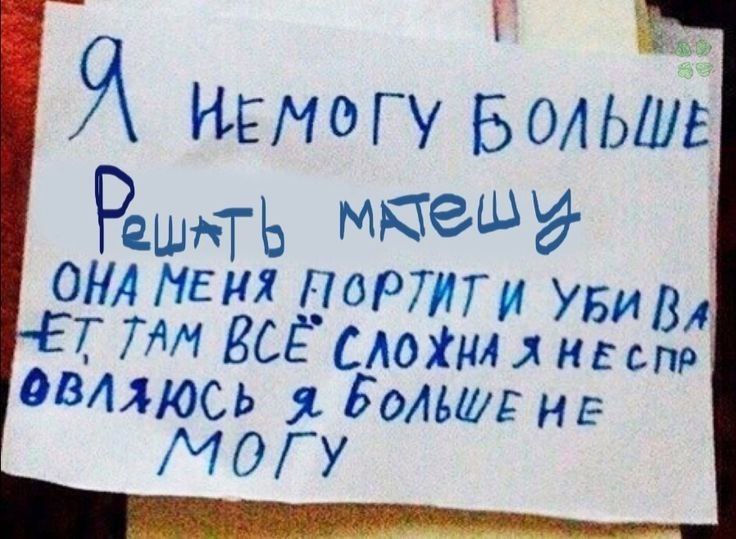 Я НЕМОГУ БОЛЬШЕ
Решать матешу
ОНА МЕНЯ ПОРТИТ И УБИВА
ЕТ, ТАМ ВСЁ СЛОЖНА Я НЕ СПР
ОВЛЯЮСЬ Я БОЛЬШЕ НЕ
МОГУ